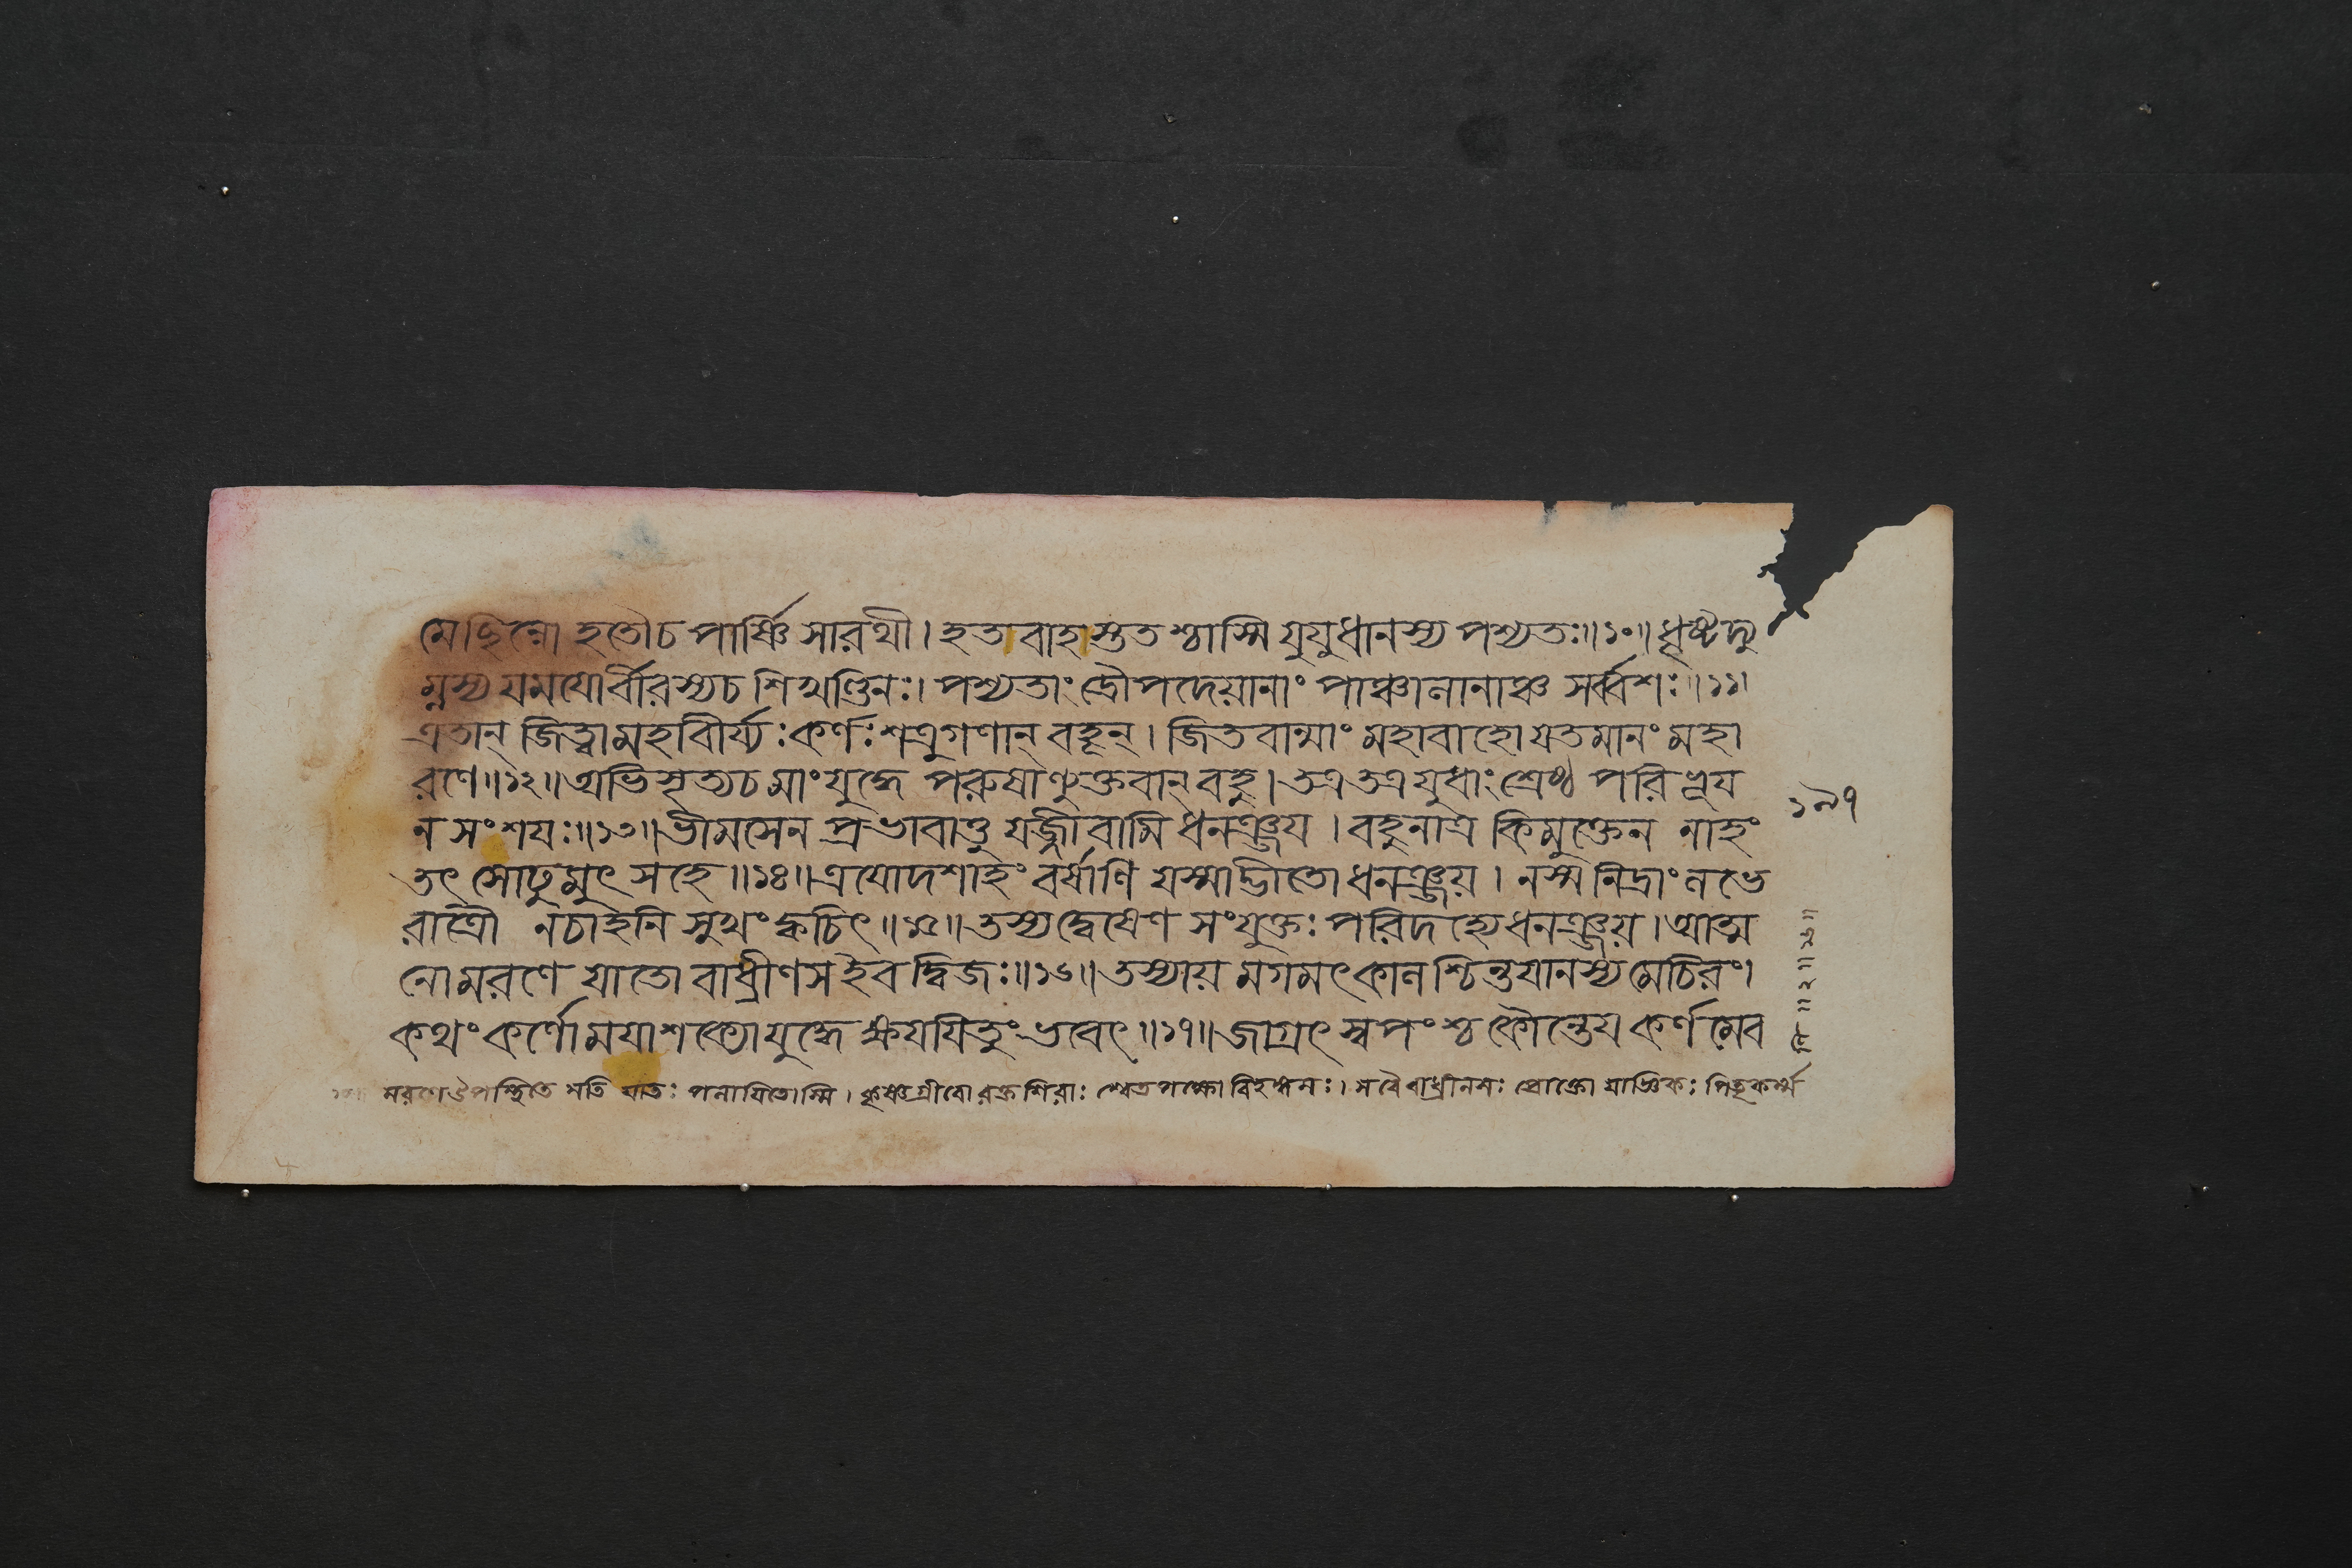 মে ছিন্নো হতৌ চ পার্ষ্ণি সারথী। হতবাহস্তুত শ্চাস্মি যুযুধানস্য পশ্যতঃ॥১০॥ ধৃষ্টদ্যু
ম্নস্য যমযোর্বীরস্যচ শিখণ্ডিনঃ। পশ্যতাং দ্রৌপদেয়ানাং পাঞ্চালানাঞ্চ সর্ব্বশঃ॥১১।
এতান্ জিত্বা মহাবীর্য্যঃ কর্ণঃ শত্রুগণান্ বহূন্। জিতবান্মাং মহাবাহো যতমানং মহা
রণে॥১২॥ অভিসৃত্যচ মাং যুদ্ধে পরুষাণ্যুক্তবান্ বহু। তত্র তত্র যুধাং শ্রেষ্ঠ পরিভূয
ন সংশযঃ॥১৩॥ ভীমসেন প্রভাবাত্তু যজ্জীবামি ধনঞ্জয। বহুনাত্র কিমুক্তেন নাহং
তৎ সোঢুমুৎ সহে॥১৪॥ ত্রযোদশাহং বর্ষাণি যস্মাদ্ভীতো ধনঞ্জয়। নস্ম নিদ্রাং লভে
রাত্রৌ নচাহনি সুখং ক্বচিৎ॥১৫॥ তস্যদ্বেষেণ সংযুক্তঃ পরিদহ্যে ধনঞ্জয়। আত্ম
নো মরণে যাতো বাধ্রীণসইব দ্বিজঃ॥১৬॥ তস্যায় মগমৎ কাল শ্চিন্তযানস্য মেচিরং।
কথং কর্ণো মযা শক্যো যুদ্ধে ক্ষযযিতুং ভবেৎ॥১৭॥ জাগ্রৎ স্বপংশ্চ কৌন্তেয কর্ণমেব
মরণে উপস্থিতে সতি যাতঃ পলাযিতোস্মি। কৃষ্ণগ্রীবো রক্তশিরাঃ শ্বেতপক্ষো বিহঙ্গমঃ। সবৈ বাধ্রীনসঃ প্রোক্তো যাজ্ঞিকঃ পিতৃকর্ম্ম
১৯৭